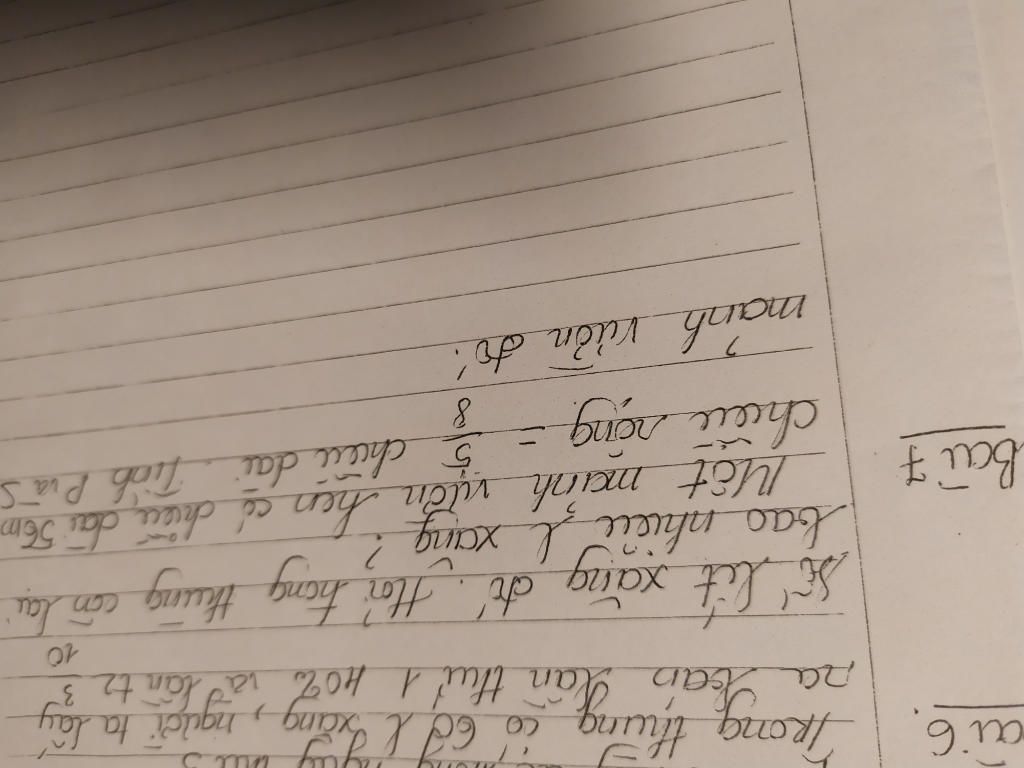 Bài 6.
Trong thùng có 60 l xăng, người ta lấy
ra lần thứ 1 40% và lần t2 3/10
số lít xăng đó. Hỏi trong thùng còn lại
bao nhiêu l xăng?
Bài 7
Một mảnh vườn hcn có chiều dài 56m
chiều rộng = 5/8 chiều dài. Tính P và S
mảnh vườn đó.